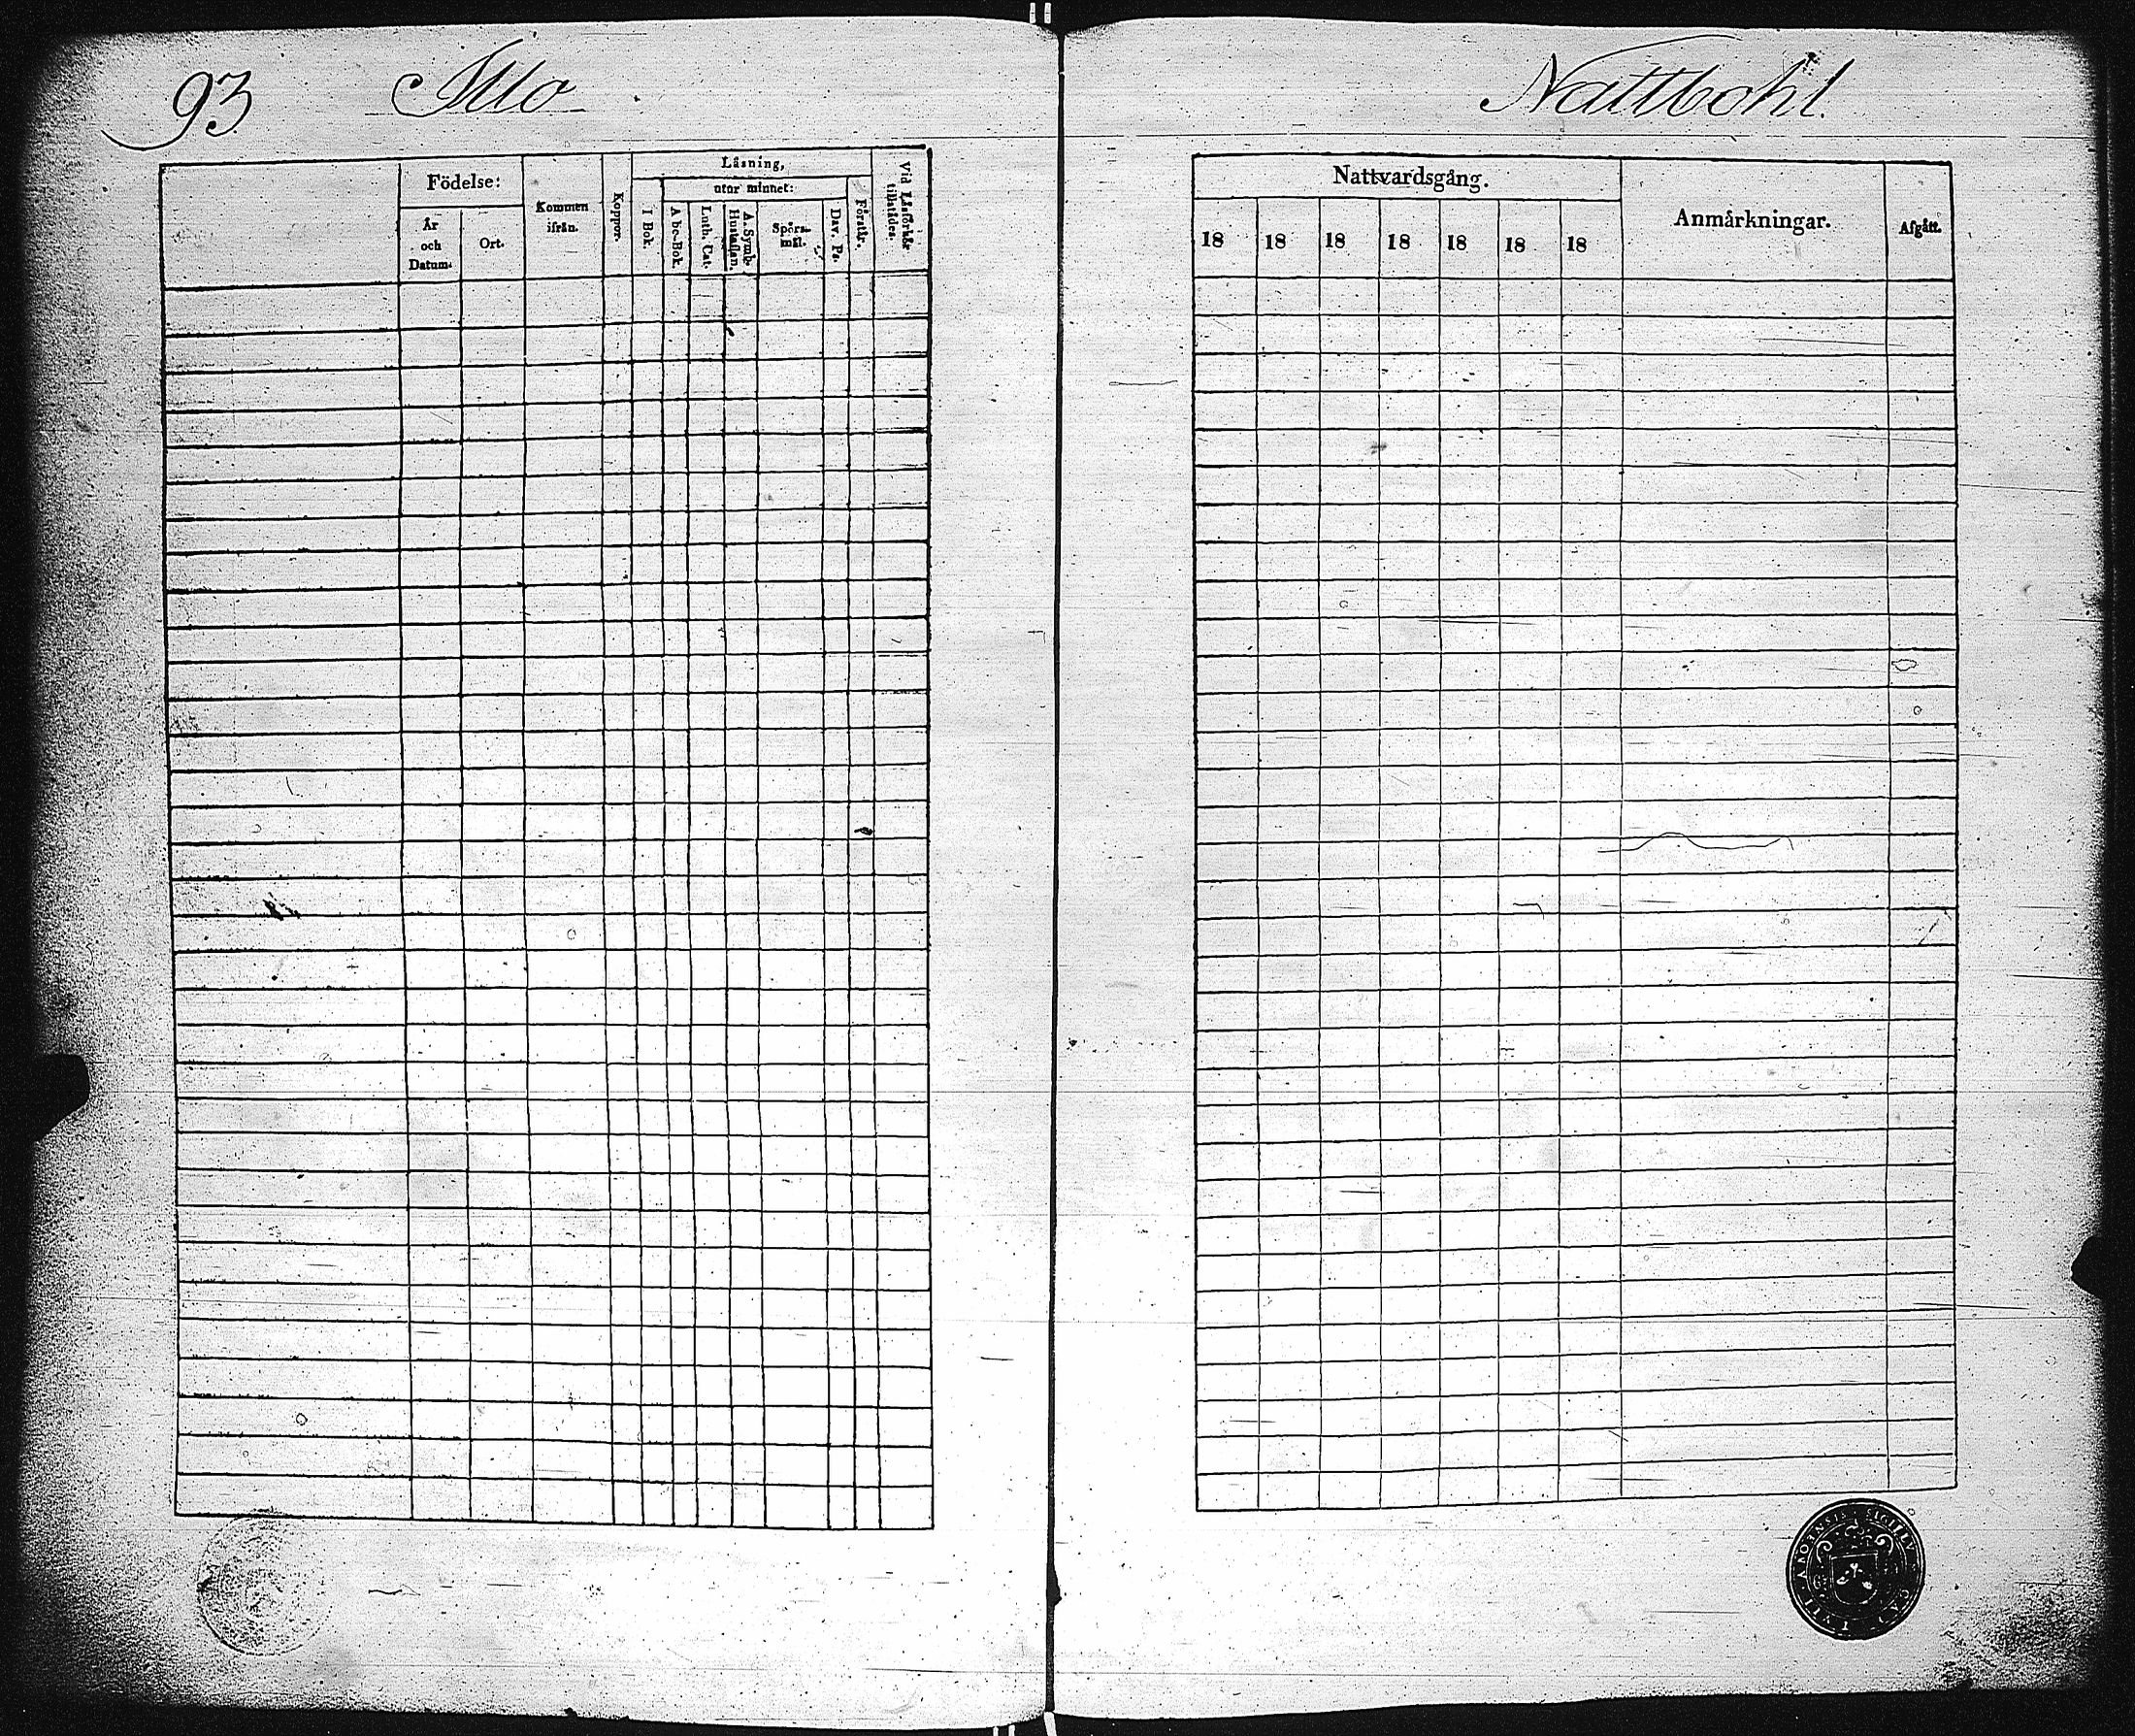 93 Atto Nattbohl.
Födelse:
År
och
Datum.
Ort.
Kommen
ifrån.
Koppor.
Läsning,
utur minnet:
I Bok.
A bc-Bok.
Luth. Cat.
A. Symb.
Hustaflan.
Spörs-
mål.
Dav. Ps.
Förstår.
Vid Läsförhör
tillstädes.
Nattvardsgång.
18 18 18 18 18 18 18
Anmärkningar.
Afgått.